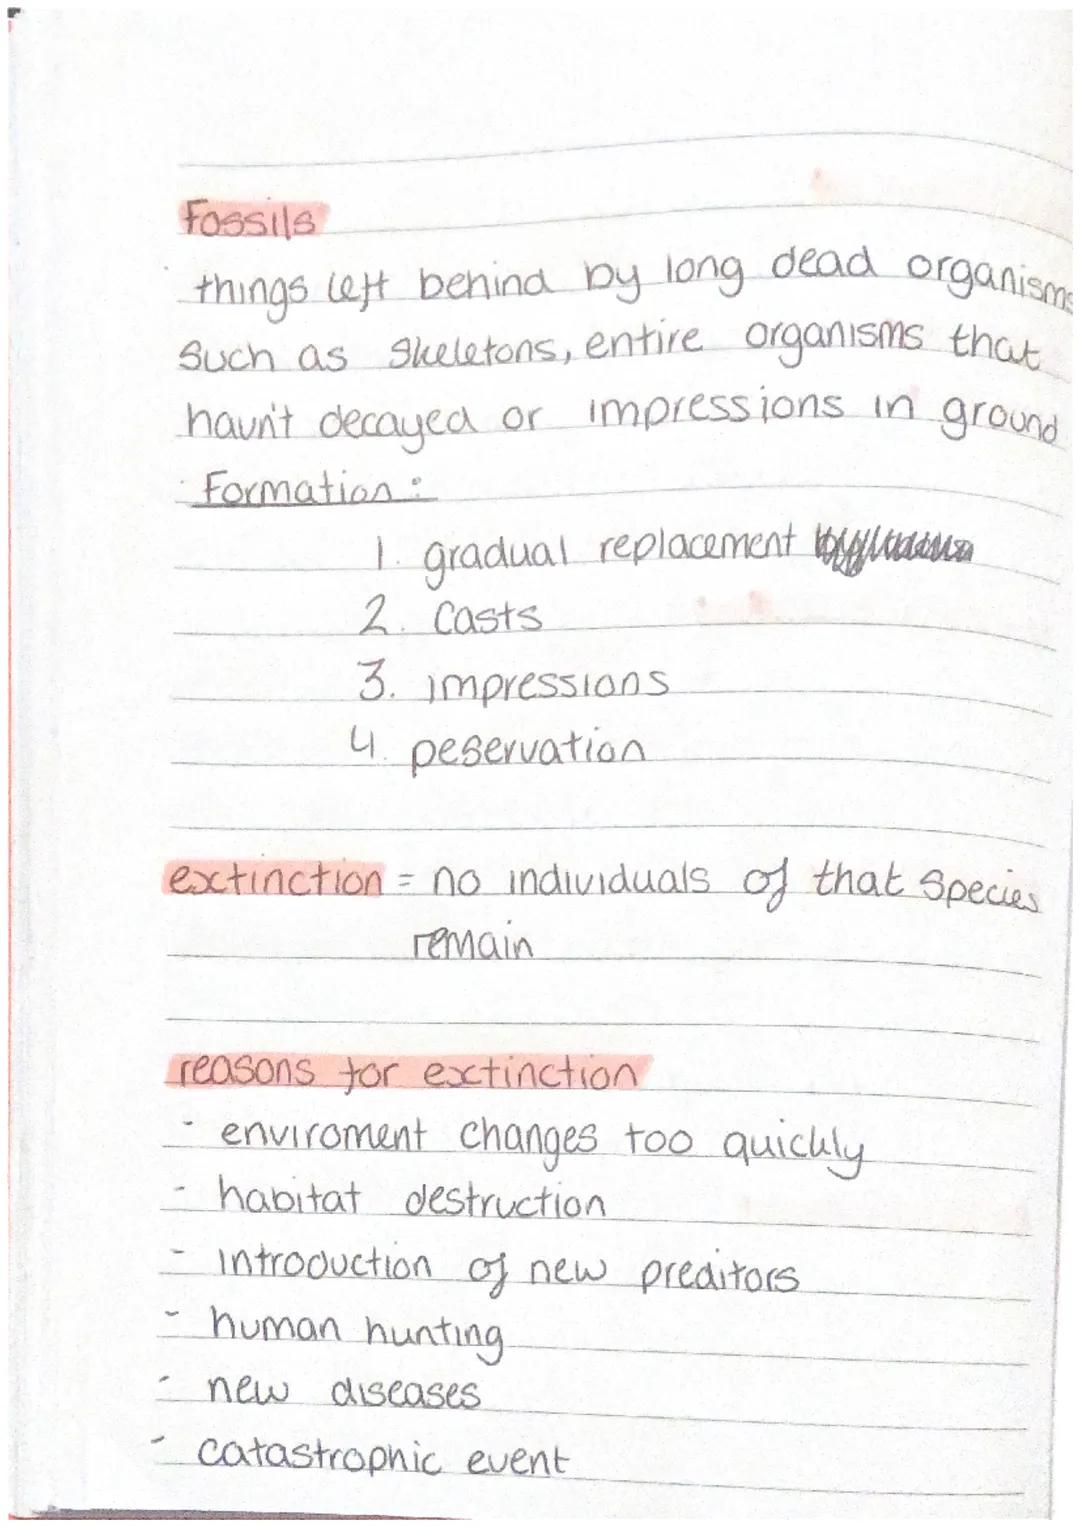 Fossils
things left behind by long dead organisms
such as skeletons, entire organisms that
havn't decayed or impressions in ground
Formation:
1. gradual replacement
2. Casts
3. impressions
4. peservation
extinction = no individuals of that species
remain
reasons for extinction
- enviroment changes too quickly
- habitat destruction
- introduction of new preditors
- human hunting
- new diseases
- catastrophic event